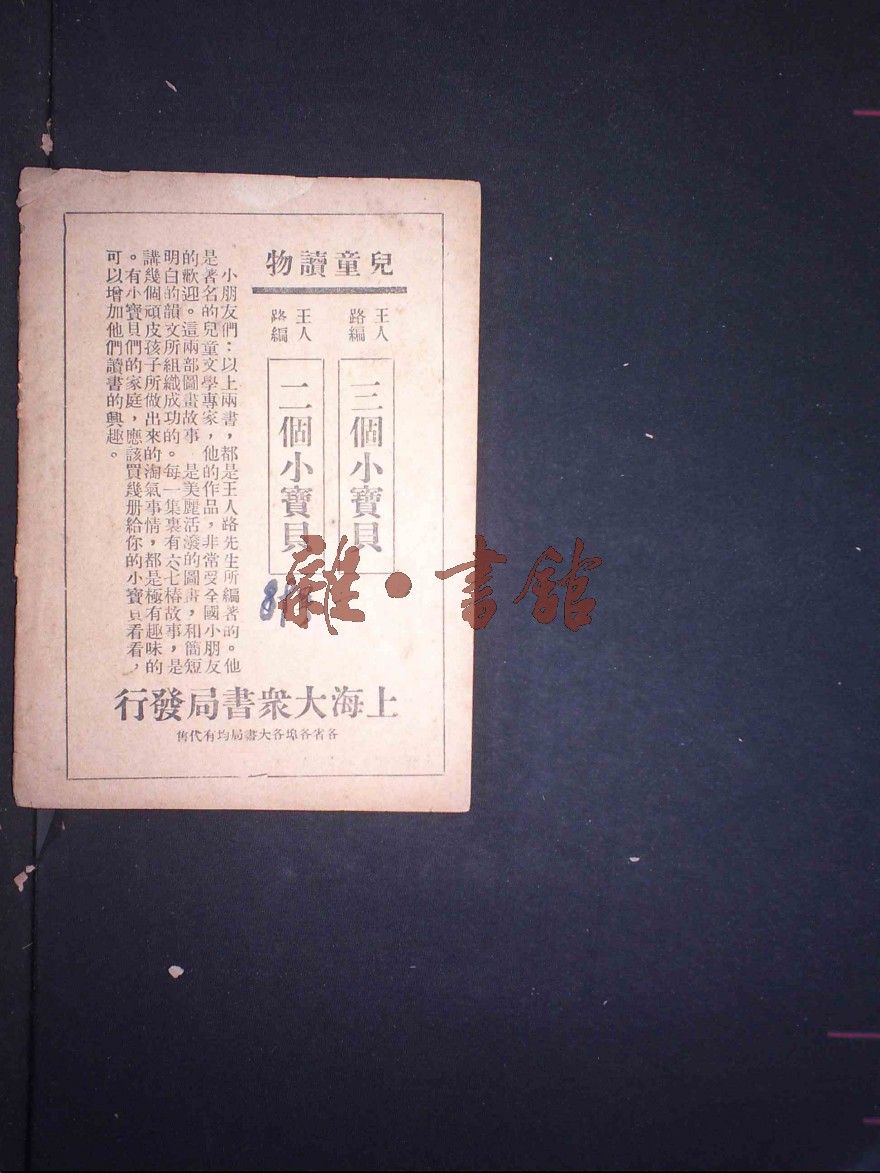 兒童讀物
王人路編
三個小寶貝
王人路編
二個小寶貝
小朋友們：以上兩書，都是王人路先生所編著的。他
是著名的兒童文學專家，他的作品，非常受全國小朋友
的歡迎。這兩部圖畫故事 是美麗活潑的圖畫，和簡短
明白的韻文所組織成功的。每一集裏有六七樁故事，是
講幾個頑皮孩子所做出來的淘氣事情，都是極有趣味的
。有小寶貝們的家庭，應該買幾册給你的小寶貝看看，
可以增加他們讀書的興趣。
上海大衆書局發行
各省各埠各大書局均有代售
雜·書館